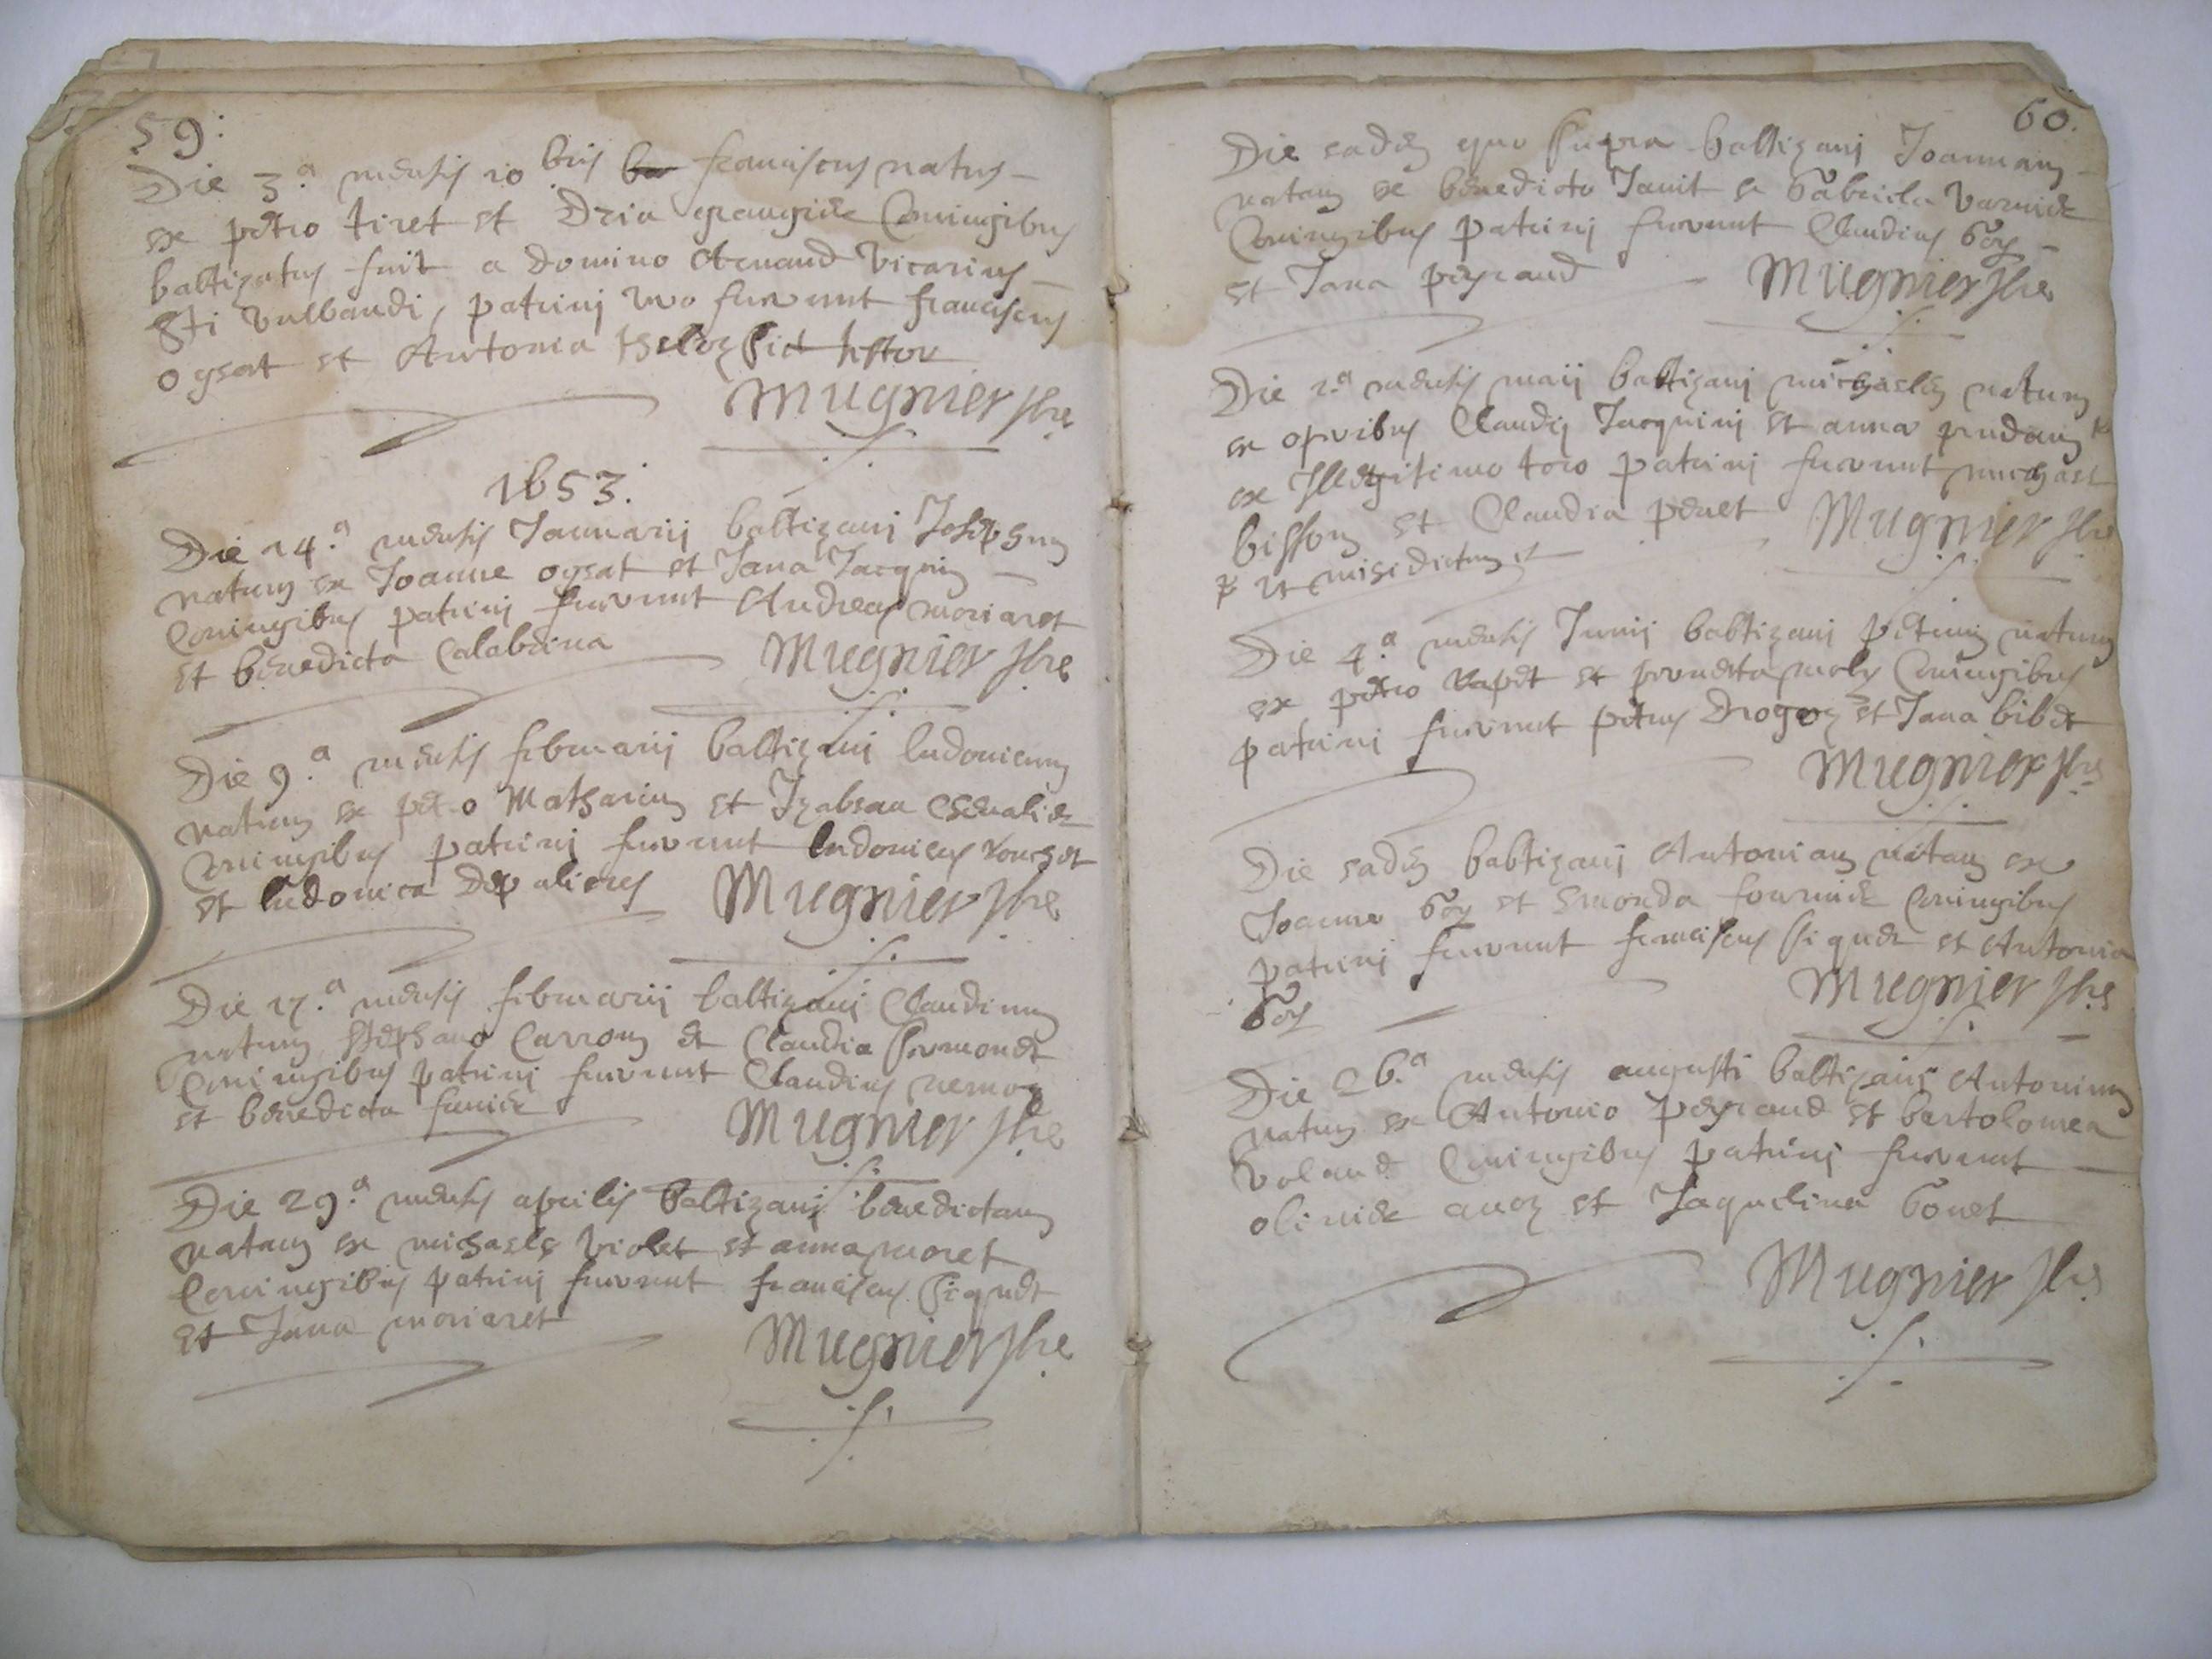 59:
Die 3.a mensis 10 bris franciscus natus
ex petro tiret et Dria grangier Coniugibus
baltizatus fuit a domino Arnaud vicarius
Sti vulbaudi, patrini vero fuerunt franciscus
ogsat et Antonia
Mugnier pbre
1653.
Die 14.a mensis Januarij baltizavi Josephum
natum ex Joanne ogsat et Jana Jacquin
Coniugibus patrini fuerunt Andreas moriaret
et benedicta Calabrina
Mugnier pbre
Die 9.a mensis februarij baltizavi ludovicum
natum ex petro Matharin et Izabeau Chevalier
Coniugibus patrini fuerunt ludovicus rouchet
et ludovica
Mugnier pbre
Die 17.a mensis februarij baltizavi Claudium
natum stephano Carron et Claudia sermondt
Coniugibus patrini fuerunt Claudius
et benedicta
Mugnier pbre
Die 29.a mensis aprilis baltizavi benedictam
natam ex michaele violet et anna moret
Coniugibus patrini fuerunt franciscus siqudt
et Jana moriaret
Mugnier pbre
60.
Die eadem quo supra baltizavi Joannam
natam ex benedicto Janit et Gabriela varnier
Coniugibus patrini fuerunt Claudius Goy
et Jana peyraud
Mugnier pbre
Die 2.a mensis maij baltizavi michaelem natum
ex opribus Claudij Jacquinij et anna prudam
ex Illegitimo toro patrini fuerunt michael
bisson et Claudia penet
Mugnier pbre
ut misi dictum est
Die 4.a mensis Junij babtizavi petrum natum
ex petro Vapet et moly Coniugibus
patrini fuerunt petrus Drogoz et Jana bibet
Mugnier pbre
Die eadem babtizavij Antoniam natam ex
Joanne Goy et Emonda fournier Coniugibus
patrini fuerunt franciscus siqudt et Antonia
Goy
Mugnier pbre
Die 26.a mensis augusti baltizavi Antonium
natum ex Antonio peyraud et bertolomea
voland Coniugibus patrini fuerunt
olivier avoz et Jaquelina Gonet
Mugnier pbre